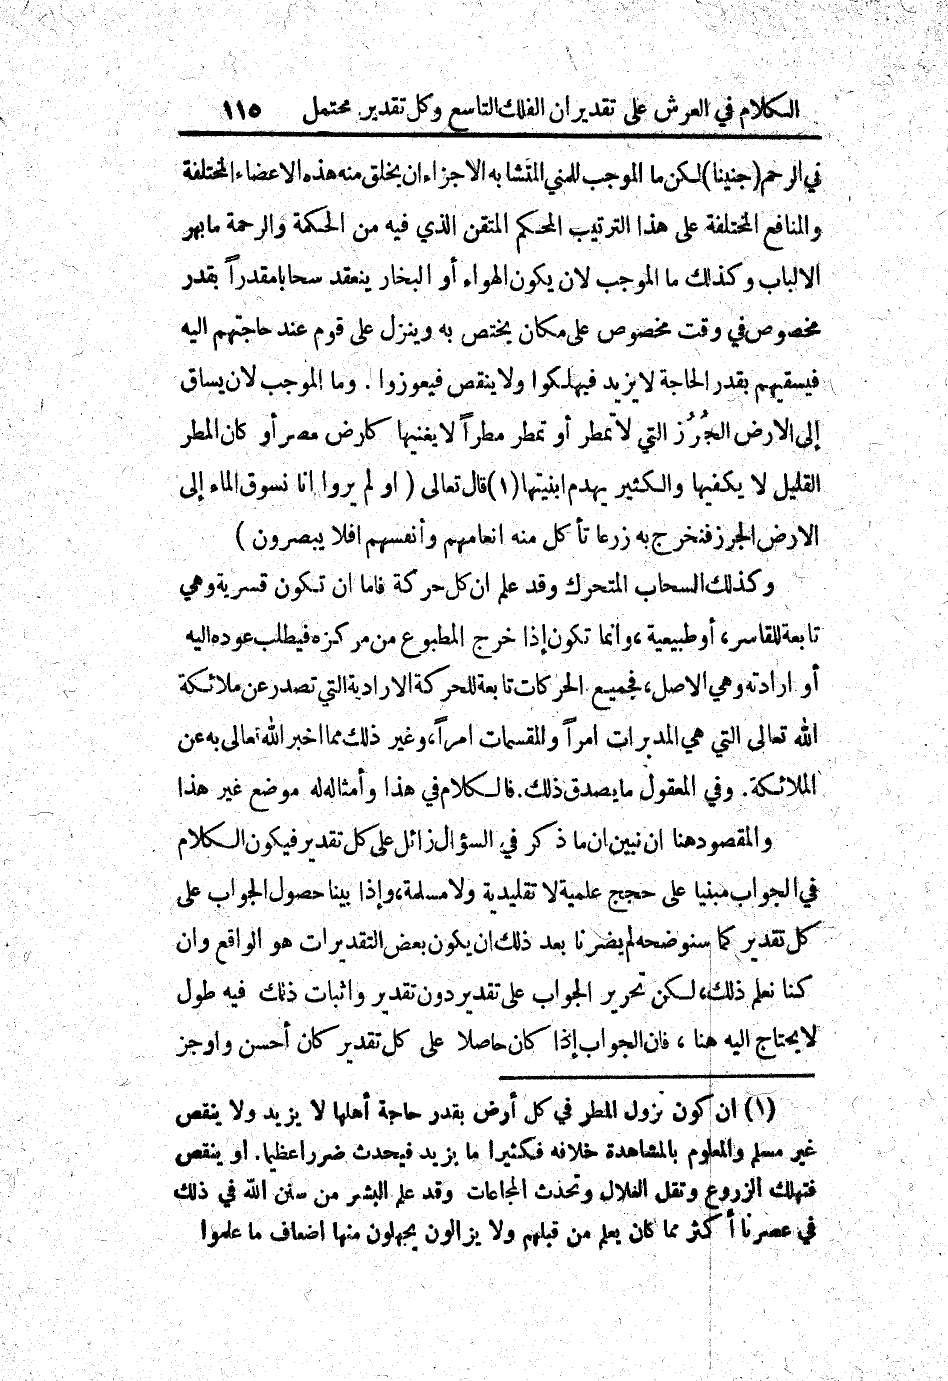 الكلام في العرش على تقدير ان الفلك التاسع وكل تقدير محتمل ١١٥
في الرحم (جنينا) لكن ما الموجب للمني المتشابه الاجزاء ان يخلق منه هذه الاعضاء المختلفة
والمنافع المختلفة على هذا الترتيب المحكم المتقن الذي فيه من الحكمة والرحمة ما بهر
الالباب وكذلك ما الموجب لان يكون الهواء أو البخار ينعقد سحابا مقدراً بقدر
مخصوص في وقت مخصوص على مكان يختص به وينزل على قوم عند حاجتهم اليه
فيسقيهم بقدر الحاجة لا يزيد فيهلكوا ولا ينقص فيعوزوا . وما الموجب لان يساق
إلى الارض الجُرُز التي لا تمطر أو تمطر مطراً لا يغنيها كارض مصر أو كان المطر
القليل لا يكفيها والكثير يهدم ابنيتها (١) قال تعالى ( او لم يروا انا نسوق الماء إلى
الارض الجرز فنخرج به زرعا تأكل منه انعامهم وأنفسهم افلا يبصرون )
وكذلك السحاب المتحرك وقد علم ان كل حركة فاما ان تكون قسرية وهي
تابعة للقاسر، أو طبيعية ، وانما تكون إذا خرج المطبوع من مركزه فيطلب عوده اليه
أو ارادته وهي الاصل، فجميع الحركات تابعة للحركة الارادية التي تصدر عن ملائكة
الله تعالى التي هي المدبرات امراً والمقسمات امراً، وغير ذلك مما اخبر الله تعالى به عن
الملائكة. وفي المعقول ما يصدق ذلك. فالكلام في هذا وأمثاله له موضع غير هذا
والمقصود هنا ان نبين ان ما ذكر في السؤال زائل على كل تقدير فيكون الكلام
في الجواب مبنيا على حجج علمية لا تقليدية ولا مسلمة، وإذا بينا حصول الجواب على
كل تقدير كما سنوضحه لم يضرنا بعد ذلك ان يكون بعض التقديرات هو الواقع وان
كنا نعلم ذلك، لكن تحرير الجواب على تقدير دون تقدير واثبات ذلك فيه طول
لا يحتاج اليه هنا ، فان الجواب إذا كان حاصلا على كل تقدير كان أحسن واوجز
(١) ان كون نزول المطر في كل أرض بقدر حاجة أهلها لا يزيد ولا ينقص
غير مسلم والمعلوم بالمشاهدة خلافه فكثيرا ما يزيد فيحدث ضررا عظيما. او ينقص
فتهلك الزروع وتقل الغلال وتحدث المجاعات وقد علم البشر من سنن الله في ذلك
في عصرنا أكثر مما كان يعلم من قبلهم ولا يزالون يجهلون منها اضعاف ما علموا